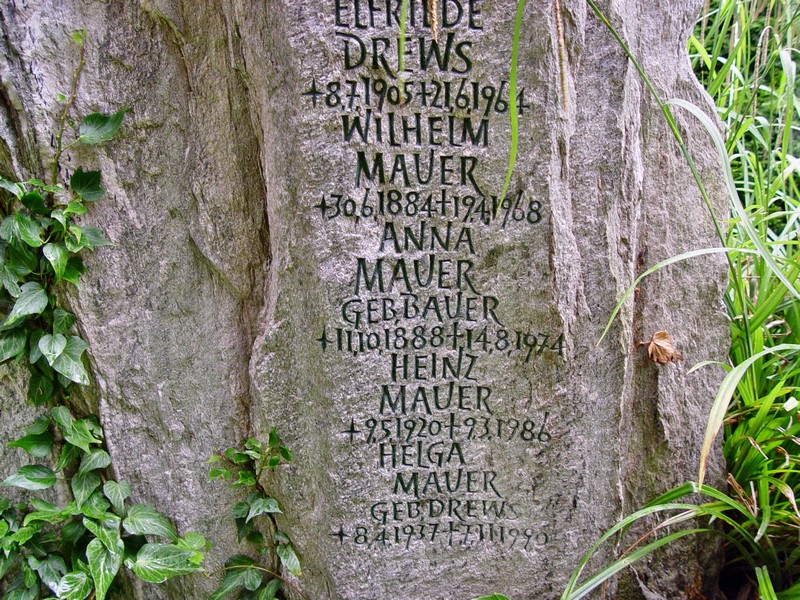 ELFRIEDE
DREWS
+8.7.1905+21.6.1964
WILHELM
MAUER
+30.6.1884+19.4.1968
ANNA
MAUER
GEB BAUER
+11.10.1888+14.8.1974
HEINZ
MAUER
+9.5.1920+9.3.1986
HELGA
MAUER
GEB DREWS
+8.4.1937+7.11.1990